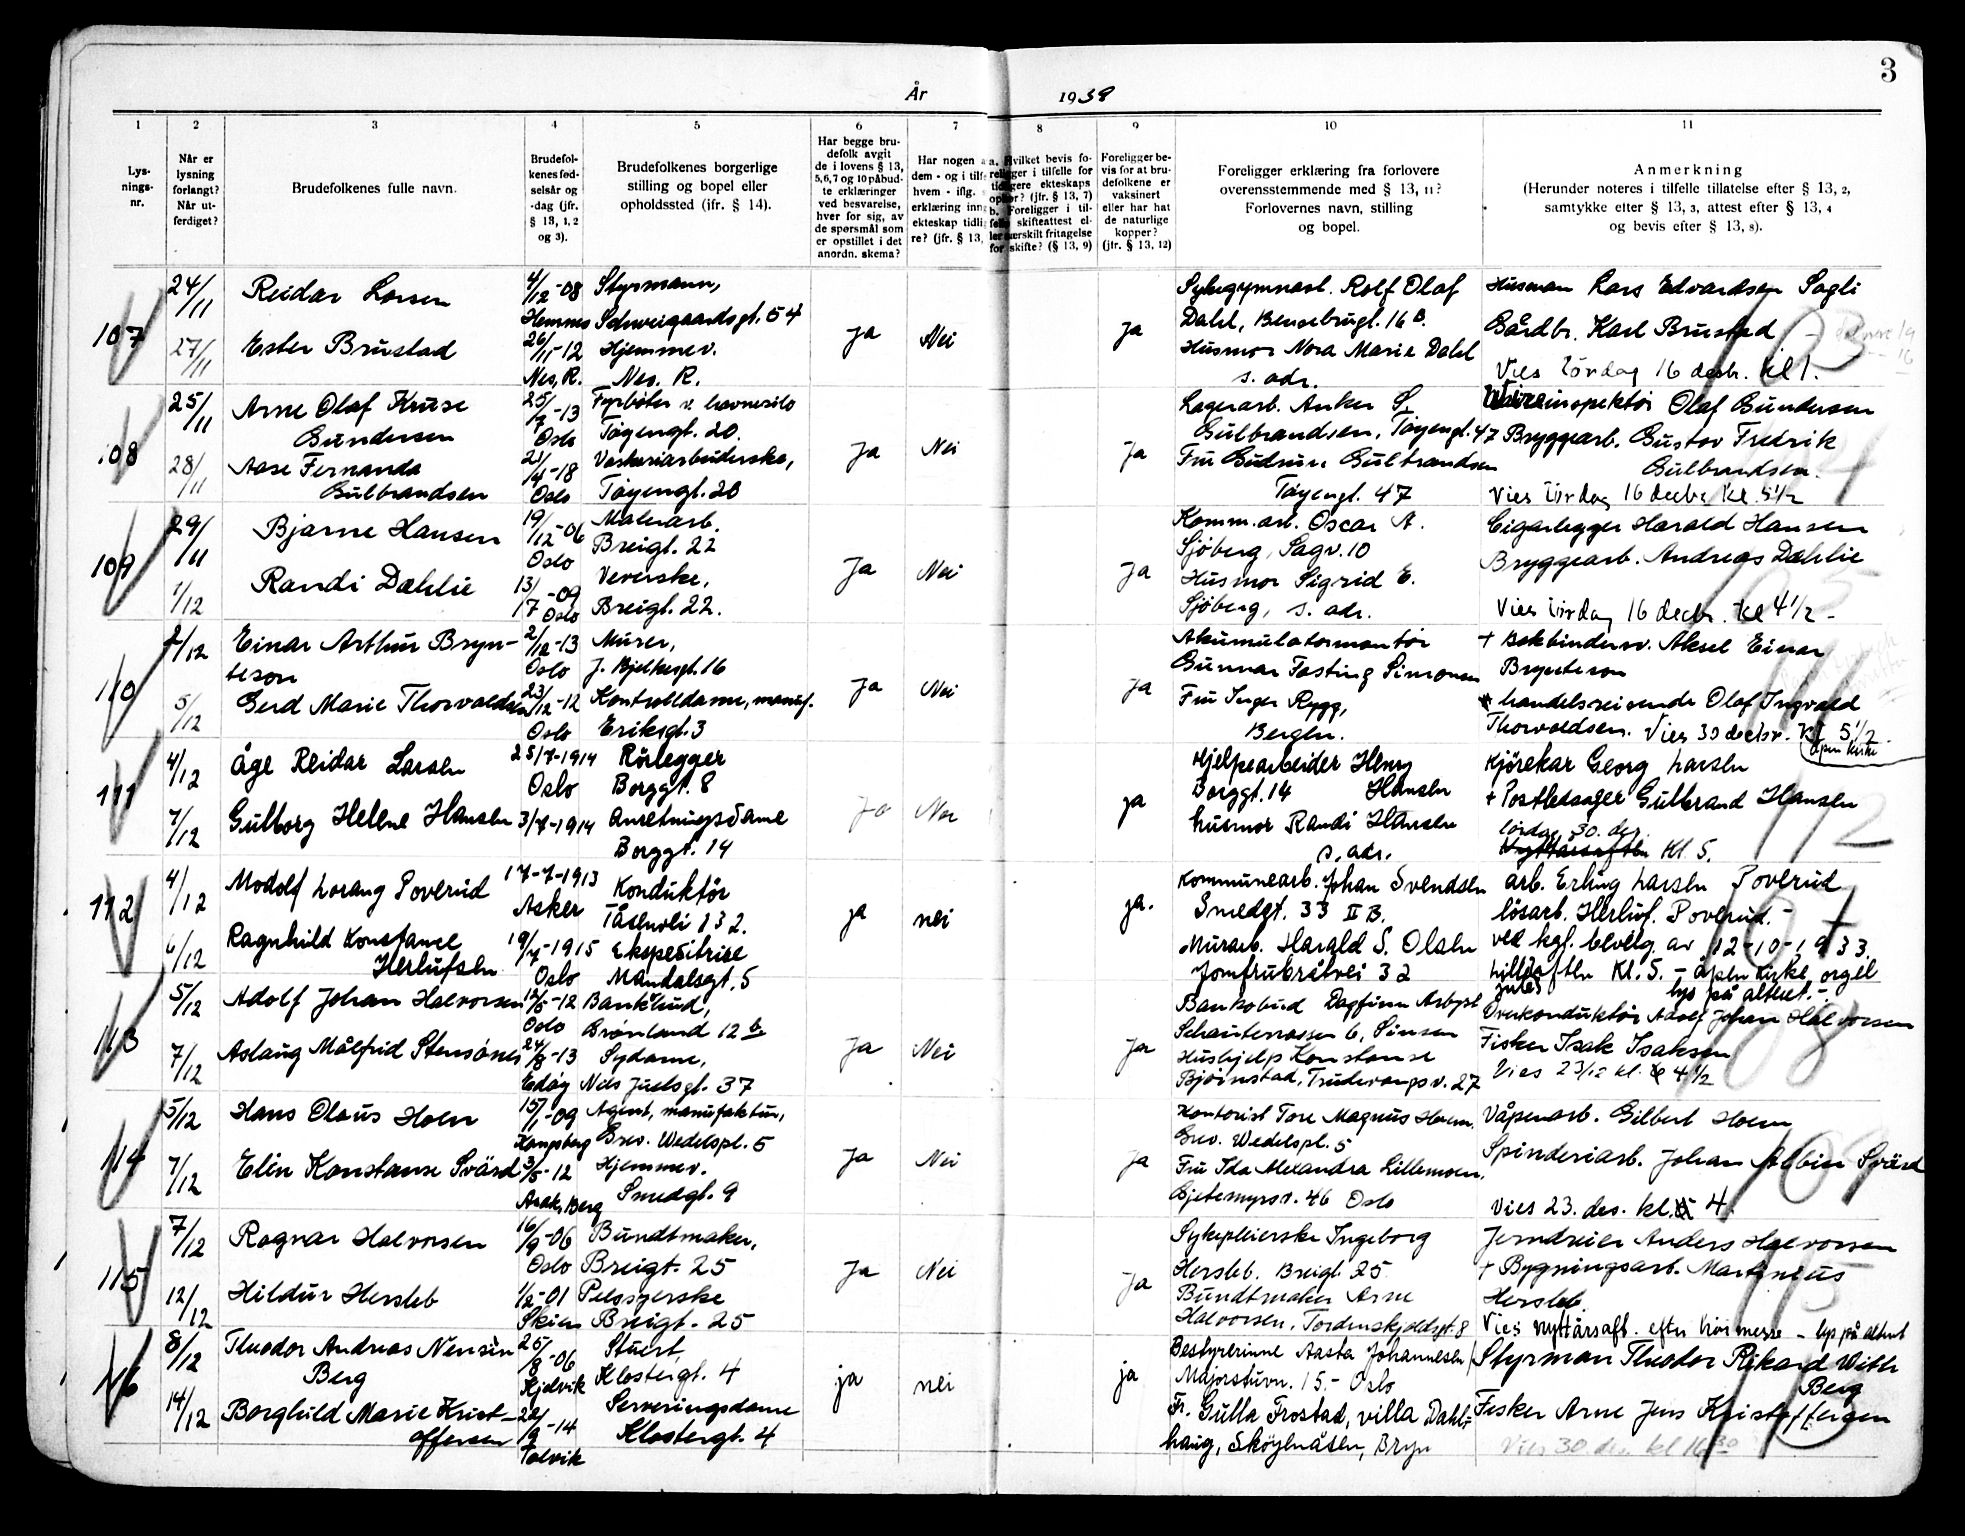 3
År 1939
1 2 3 4 5 6 7 8 9 10 11
Lys-
nings-
nr.
Når er
lysning
forlangt?
Når ut-
ferdiget?
Brudefolkenes fulle navn.
Brudefol-
kenes fød-
selsår og
-dag (jfr.
§ 13, 1, 2
og 3).
Brudefolkenes borgerlige
stilling og bopel eller
opholdssted (jfr. § 14).
Har begge bru-
defolk avgit
de i lovens § 13,
5,6,7 og 10 påbud-
te erklæringer
ved besvarelse,
hver for sig, av
de spørsmål som
er opstillet i det
anordn. skema?
Har nogen a
dem - og i tilf
hvem - iflg.
erklæring inng
ekteskap tidli
re? (jfr. § 13,
a. Hvilket bevis fo-
religger i tilfelle for
tidligere ekteskaps
ophør? (jfr. § 13, 7)
b. Foreligger i til-
felle skifteattest el-
ler særskilt fritagelse
for skifte? (§ 13, 9)
Foreligger be-
vis for at bru-
defolkene er
vaksinert
eller har hat
de naturlige
kopper?
(jfr. § 13, 12)
Foreligger erklæring fra forlovere
overensstemmende med § 13, 11?
Forlovernes navn, stilling
og bopel.
Anmerkning
(Herunder noteres i tilfelle tillatelse efter § 13, 2,
samtykke efter § 13, 3, attest efter § 13, 4
og bevis efter § 13, 8).
107
24/11
27/11
Reidar Larsen
Ester Brustad
4/12-08
Hemnes
26/11-12
Nes, R.
Styrmann,
Schweigaardsgt. 54
Hjemmev.
Nes. R.
Ja Nei Ja
Sykegymnast. Rolf Olaf
Dahl, Bensebrugt. 16 B.
Husmor Nora Marie Dahl
s. adr.
Husman Lars Edvardsen Sagli
Gårdbr. Karl Brustad
Vies lördag 16 desbr. kl 1.
103
108
25/11
28/11
Arne Olaf Kruse
Gundersen
Aase Fernanda
Gulbrandsen
25/7-13
Oslo
-18
Oslo
Fyrböter v. havnesilo
Töyengt. 20.
Vaskeriarbeiderske,
Töyengt. 20
Ja Nei Ja
Lagerarb. Anker
Gulbrandsen, Töyengt. 47
Fru Gudrun Gulbrandsen
Töyengt. 47
inspektör Olaf Gundersen
Bryggearb. Gustav Fredrik
Gulbrandsen.
Vies lördag 16 decbr kl. 5½
109
29/11
1/12
Bjarne Hansen
Randi Dæhlie
19/12-06
Oslo
13/7-09
Oslo
Malerarb.
Breigt. 22
Veverske,
Breigt. 22.
Ja Nei Ja
Komm.arb. Oscar A.
Sjöberg, Sagv. 10
Husmor Sigrid E.
Sjöberg, s. adr.
Cigarlegger Harald Hansen
Bryggearb. Andreas Dæhlie
Vies lördag 16 decbr. kl 4½ -
110
2/12
5/12
Einar Arthur Bryn-
teson
Gerd Marie Thorvaldsen
2/12-13
Oslo
23/12-12
Oslo
Murer,
J. Bjelkesgt. 16
Kontrolldame, manuf.
Eriksgt. 3
Ja Nei Ja
Akumulatormontör
Gunnar Tosting Simonsen
Fru Inger Rygg,
Bergen.
+ Bokbindersv. Aksel Einar
Brynteson
handelsreisende Olaf Ingvald
Thorvaldsen. Vies 30 decbr. Kl 5½.
åpen kirke
111
4/12
7/12
Åge Reidar Larsen
Gulborg Helene Hansen
25/7-1914
Oslo
3/7-1914
Rörlegger
Borggt. 8
Anretningsdame
Borggt. 14
Ja Nei ja
Hjelpearbeider Henry
Borggt. 14 Hansen
husmor Randi Hansen
s. adr.
Kjörekar Georg Larsen
+ Postledsager Gulbrand Hansen
lördag 30. des.
Kl. 5.
112
112
4/12
6/12
Modolf Lorang Poverud
Ragnhild Konstanse
Herlufsen
17-7-1913
Asker
19/7-1915
Oslo
Konduktör
Tåsenvei 132.
Ekspeditrise
Mandalsgt. 5
ja nei ja.
Kommunearb. Johan Svendsen
Smedgt. 33 II B.
Murarb. Harald S. Olsen
Jomfrubråtvei 32
arb. Erling Larsen Poverud
lösarb. Herluf. Poverud. -
ved kgl. bevilg av 12-10-1933.
Lillejulaften Kl. 5. - åpen kirke, orgel
lys på alteret. -
107
113
5/12
7/12
Adolf Johan Halvorsen
Aslaug Målfrid Stensönes
12/5-12
Oslo
24/8-13
Edöy
Bankbud,
Grönland 12 b
Sydame,
Nils Juelsgt. 37
Ja Nei Ja
Bankobud Dagfinn Asbyst
Schouterrassen 6, Sinsen
Hushjelp Konstanse
Bjönstad, Trudvangsv. 27
Overkonduktör Adolf Johan Halvorsen
Fisker Isak Isaksen
Vies 23/12 kl. 4½
108
114
5/12
7/12
Hans Olaus Hoen
Elin Konstanse Svärd
15/1-09
Kongsberg
3/5-12
Agent, manufaktur,
Grev. Wedelspl. 5
Hjemmev.
Smedgt. 9
Ja Nei Ja
Kontorist Tore Magnus Hoen.
Grev. Wedelspl. 5
Fru Ida Alexandra Lillemoen.
Gjetemyrsv. 46 Oslo
Våpenarb. Gilbert Hoen
Spinderiarb. Johan Albin Svärd
Vies 23. des. kl. 4.
109
115
7/12
12/12
Ragnar Halvorsen
Hildur Hersleb
16/9-06
Oslo
1/2-01
Skien
Bundtmaker,
Breigt. 25
Pelssyerske
Breigt. 25
Ja Nei Ja
Sykepleierske Ingeborg
Hersleb. Breigt. 25.
Bundtmaker Arne
Halvorsen, Tordenskjoldsgt. 8
Jerndreier Anders Halvorsen
+ Bygningsarb. Martinius
Hersleb.
Vies nyttårsaft. efter - lys på alteret
115
116
8/12
14/12
Theodor Andreas Nensen
Berg
Borghild Marie Krist-
offersen
25/8-06
Kjelvik
20/9-14
Talvik
Stuert,
Klostergt. 4
Serveringsdame
Klostergt. 4
ja nei ja
Bestyrerinne Aasta Johannesen
Majorstuvn. 15.- Oslo
Fr. Gulla Frostad, villa Dahl=
haug, Sköyenåsen, Bryn
Styrman Theodor Rikard With
Berg
Fisker Arne Jens Kristoffersen
Vies 30. des kl 16.30
113